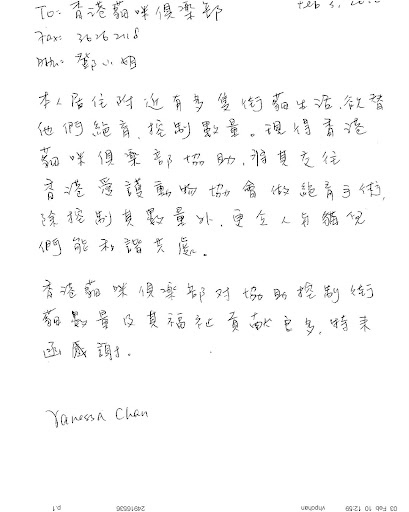 To: 香港貓咪俱樂部
Feb
Fax: 26262118
Attn: 鄧小姐
本人居住附近有多隻街貓生活,欲替
他們絕育,控制數量。現得香港
貓咪俱樂部協助,將其交往
香港愛護動物協會做絕育手術,
除控制其數量外,更令人與貓兒
們能和諧共處。
香港貓咪俱樂部对協助控制街
貓數量及其福祉貢献良多,特来
函感謝。
Vanessa Chan
03 Feb 10 12:59 vhpchan 24916536 p.1